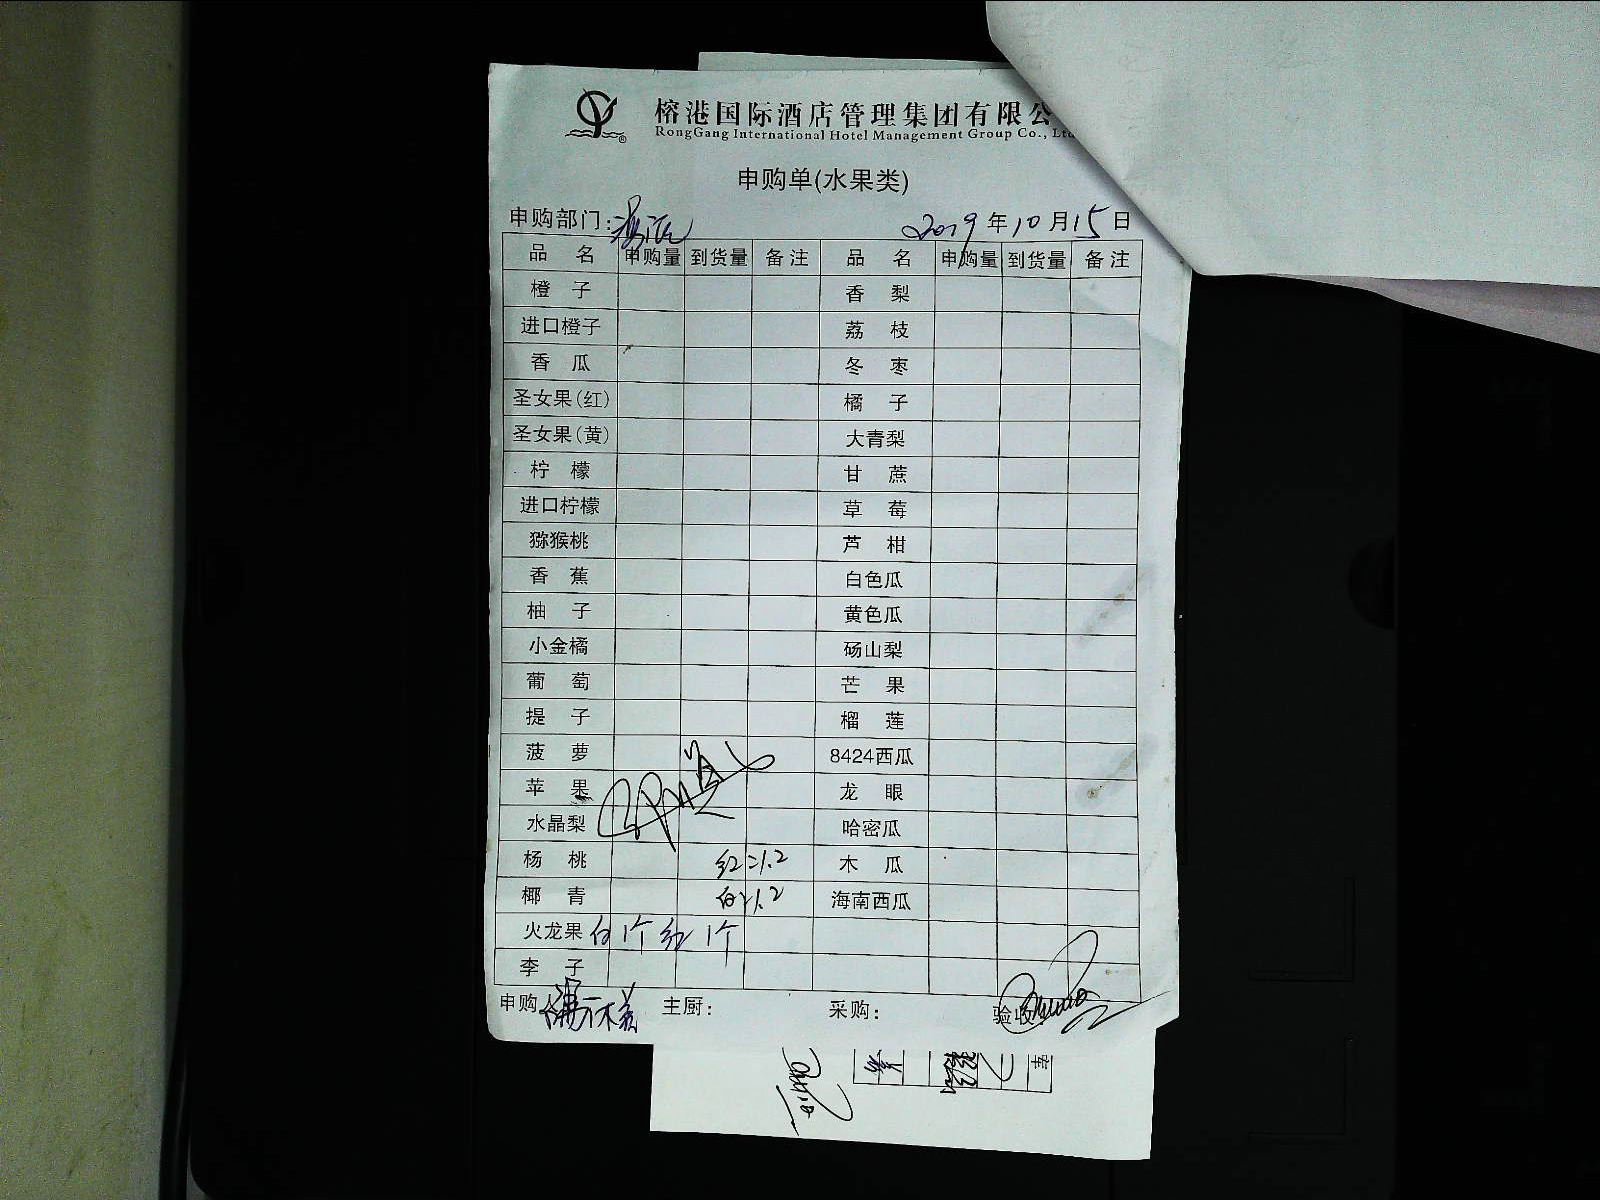 榕港国际酒店管理集团有限公
RongGang International Hotel Management Group Co., Ltd
申购单(水果类)
申购部门: 2019年10月15日
品 名 申购量 到货量 备注 品 名 申购量 到货量 备注
橙 子 香 梨
进口橙子 荔 枝
香 瓜 冬 枣
圣女果(红) 橘 子
圣女果(黄) 大青梨
柠 檬 甘 蔗
进口柠檬 草 莓
猕猴桃 芦 柑
香 蕉 白色瓜
柚 子 黄色瓜
小金橘 砀山梨
葡 萄 芒 果
提 子 榴 莲
菠 萝 8424西瓜
苹 果 龙 眼
水晶梨 哈密瓜
杨 桃 红 1.2 木 瓜
椰 青 白 1.2 海南西瓜
火龙果 白 1个 红 1个
李 子
申购人 主厨: 采购: 验收